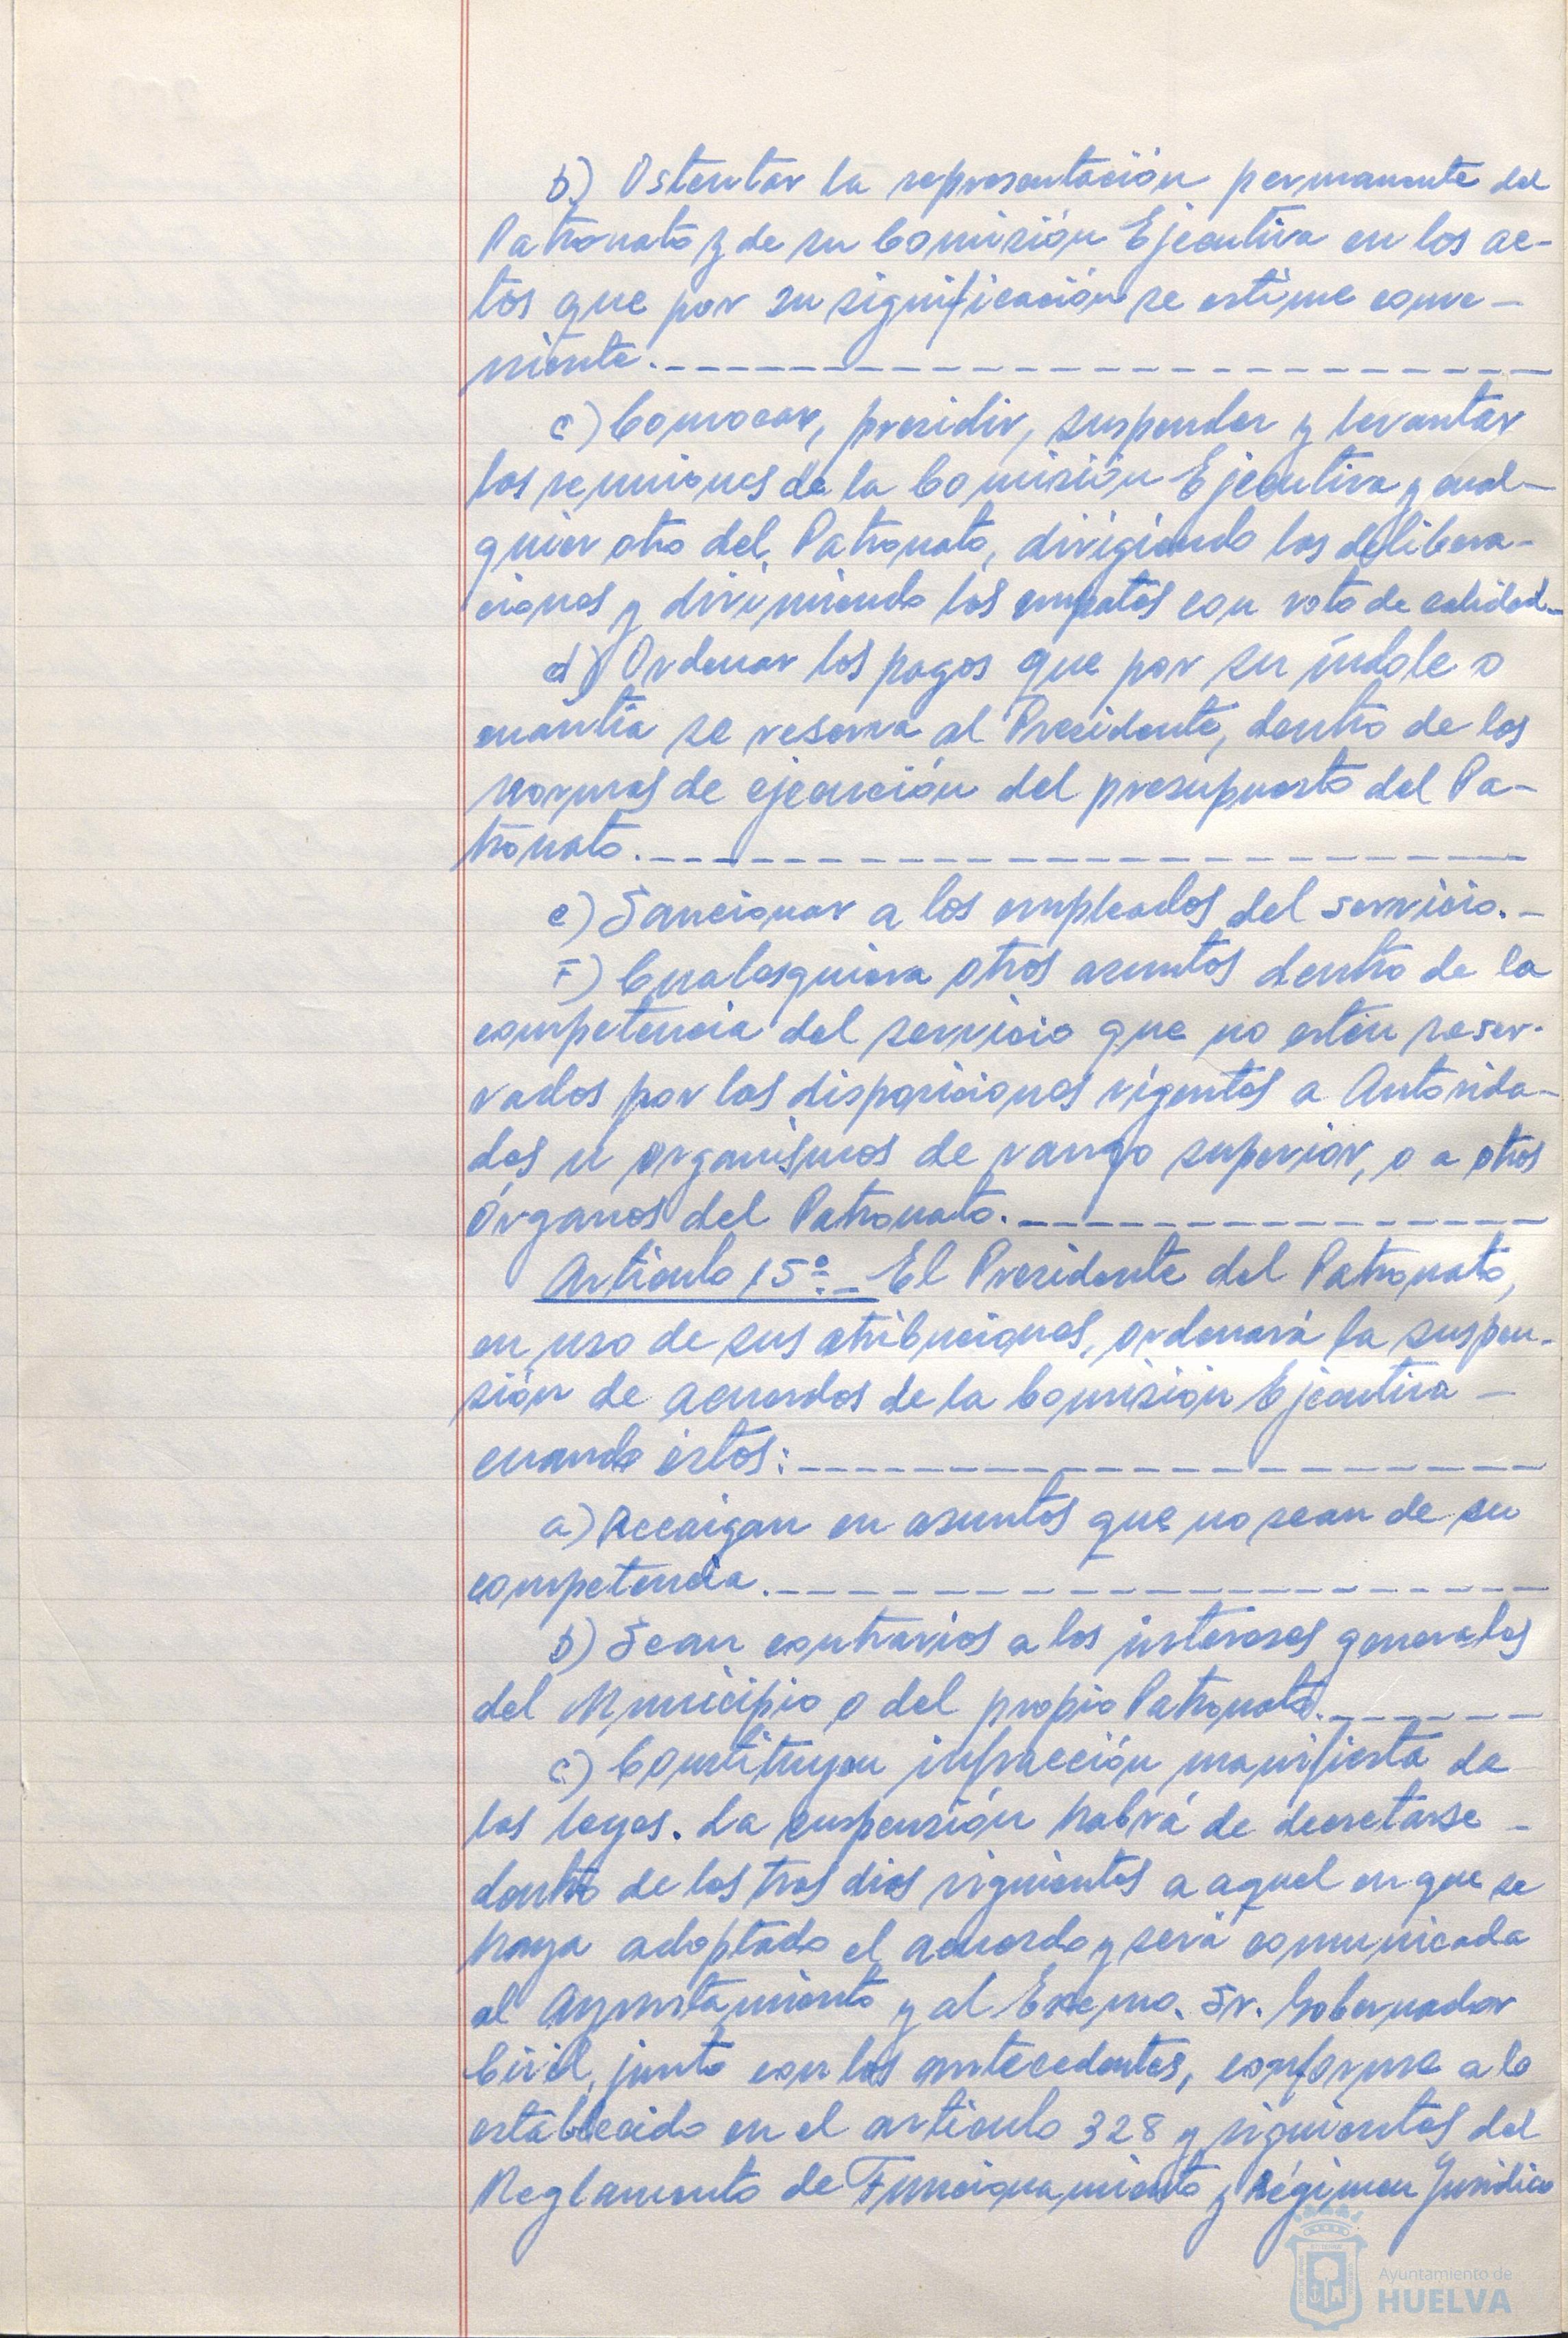 b) Ostentar la representación permanente del
Patronato y de su Comisión Ejecutiva en los ac-
tos que por su significación se estime conve-
niente.
c) Convocar, presidir, suspender y levantar
las reuniones de la Comisión Ejecutiva y cual-
quier otro del Patronato, dirigiendo las delibera-
ciones y dirimiendo los empates con voto de calidad.
d) Ordenar los pagos que por su índole o
cuantía se reserva al Presidente, dentro de las
normas de ejecución del presupuesto del Pa-
tronato.
e) Sancionar a los empleados del servicio.
F) Cualesquiera otros asuntos dentro de la
competencia del servicio que no estén reser-
vados por las disposiciones vigentes a Autorida-
des u organismos de rango superior, o a otros
Órganos del Patronato.
Artículo 15º.- El Presidente del Patronato,
en uso de sus atribuciones, ordenará la suspen-
sión de acuerdos de la Comisión Ejecutiva -
cuando éstos:
a) Recaigan en asuntos que no sean de su
competencia.
b) Sean contrarios a los intereses generales
del Municipio o del propio Patronato.
c) Constituyen infracción manifiesta de
las leyes. La suspensión habrá de decretarse -
dentro de los tres días siguientes a aquel en que se
haya adoptado el acuerdo y será comunicada
al Ayuntamiento y al Excmo. Sr. Gobernador
Civil, junto con los antecedentes, conforme a lo
establecido en el artículo 328 y siguientes del
Reglamento de Funcionamiento y Régimen Jurídico
Ayuntamiento de
HUELVA